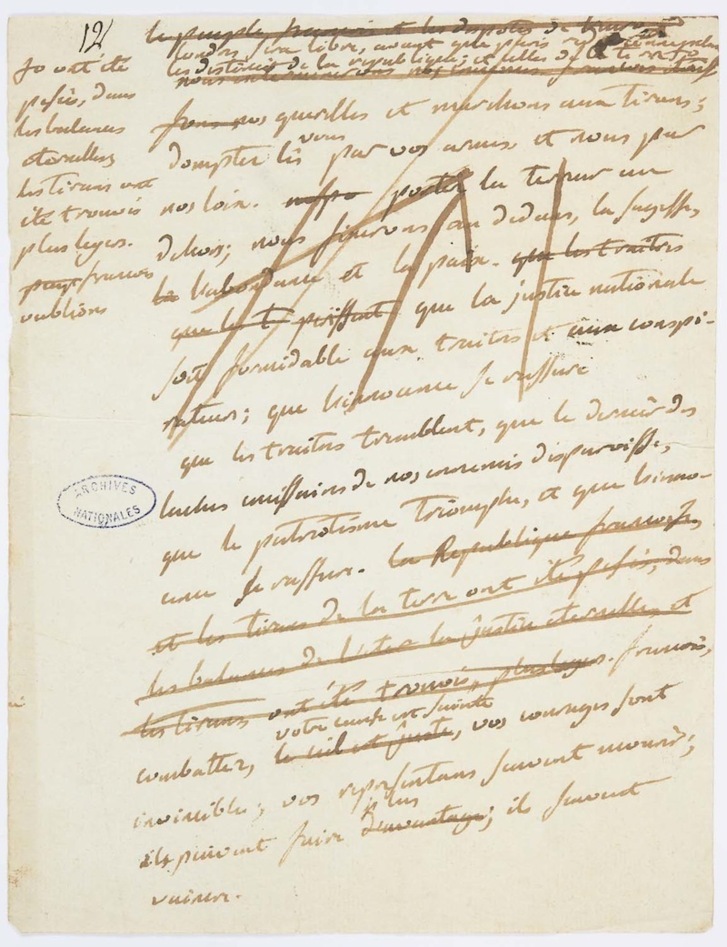 12
le peuple françois et les despotes de
Londres sera libre, avant que Paris
les destinées de la république; et celles de la terre
nos querelles et marchons aux tirans;
domptez les vous par vos armes, et nous par
nos loix. porter la terreur au
dehors; nous fixerons au dedans, la sagesse,
l'abondance et la paix. que les traitres
que les t périssent que la justice nationale
soit formidable aux traitres et aux conspi-
rateurs; que l'innocence se rassure
que les traitres tremblent, que le dernier des
laches émissaires de nos ennemis disparoisse,
que le patriotisme triomphe, et que l'inno-
cence se rassure. La République françoise,
et les tirans de la terre ont été pesés, dans
les balances de la justice éternelle, et
les tirans ont été trouvés, plus légers. françois,
votre cause est sainte
combattez, le ciel est juste, vos courages sont
invincibles; vos représentans savent mourir;
plus
ils peuvent faire davantage; ils savent
vaincre.
ont été
pesés, dans
les balances
éternelles
les tirans ont
été trouvés
plus légers.
francois
oublions
ARCHIVES
NATIONALES